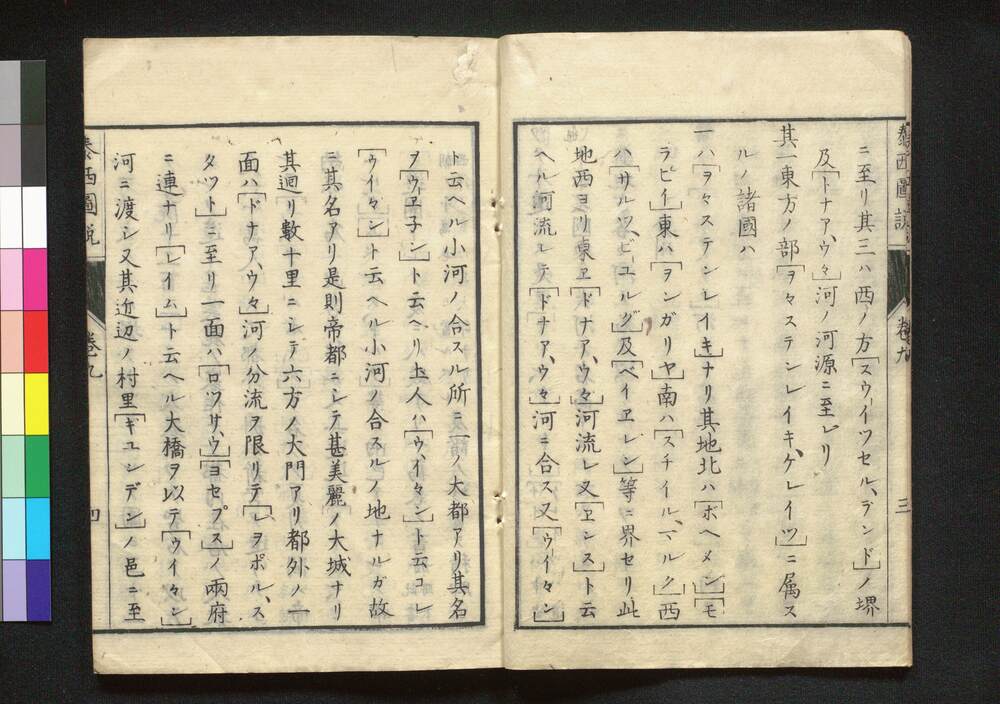 泰西圖説
卷九
三
ニ至リ其三ハ西ノ方[スウーイツセル、ランド]ノ堺
及[トナア、ウ々]河ノ河源ニ至レリ
其一東方ノ部[ヲ々ステンレイキ、ケレイツ]ニ属ス
ルノ諸國ハ
一ハ[ヲ々ステンレイキ]ナリ其地北ハ[ボヘメン][モ
ラビイ]東ハ[ヲンガリヤ]南ハ[スチイル、マルク]西
ハ[サルツ、ビユルグ]及[ベイヱレン]等ニ界セリ此
地西ヨリ東ヱ[ドナア、ウ々]河流レ又[ヱンス]ト云
ヘル河流レテ[ドナア、ウ々]河ニ合ス又[ウーイ々ン]
ト云ヘル小河ノ合スル所ニ一ノ大都アリ其名
ヲ[ウヱ子ン]ト云ヘリ土人ハ[ウ、イ々ン]ト云コレ
[ウイ々ン]ト云ヘル小河ノ合スルノ地ナルガ故
ニ其名アリ是則帝都ニシテ甚美麗ノ大城ナリ
其廻リ數十里ニシテ六方ノ大門アリ都外ノ一
面ハ[ドナア、ウ々]河ノ分流ヲ限リテ[レヲポル、ス
タツト]ニ至リ一面ハ[ロツサ、ウ][ヨセプス]ノ兩府
ニ連ナリ[レイム]ト云ヘル大橋ヲ以テ[ウイ々ン]
河ニ渡シ又其近辺ノ村里[ギユンデン]ノ邑ニ至
泰西圖説
卷九
四